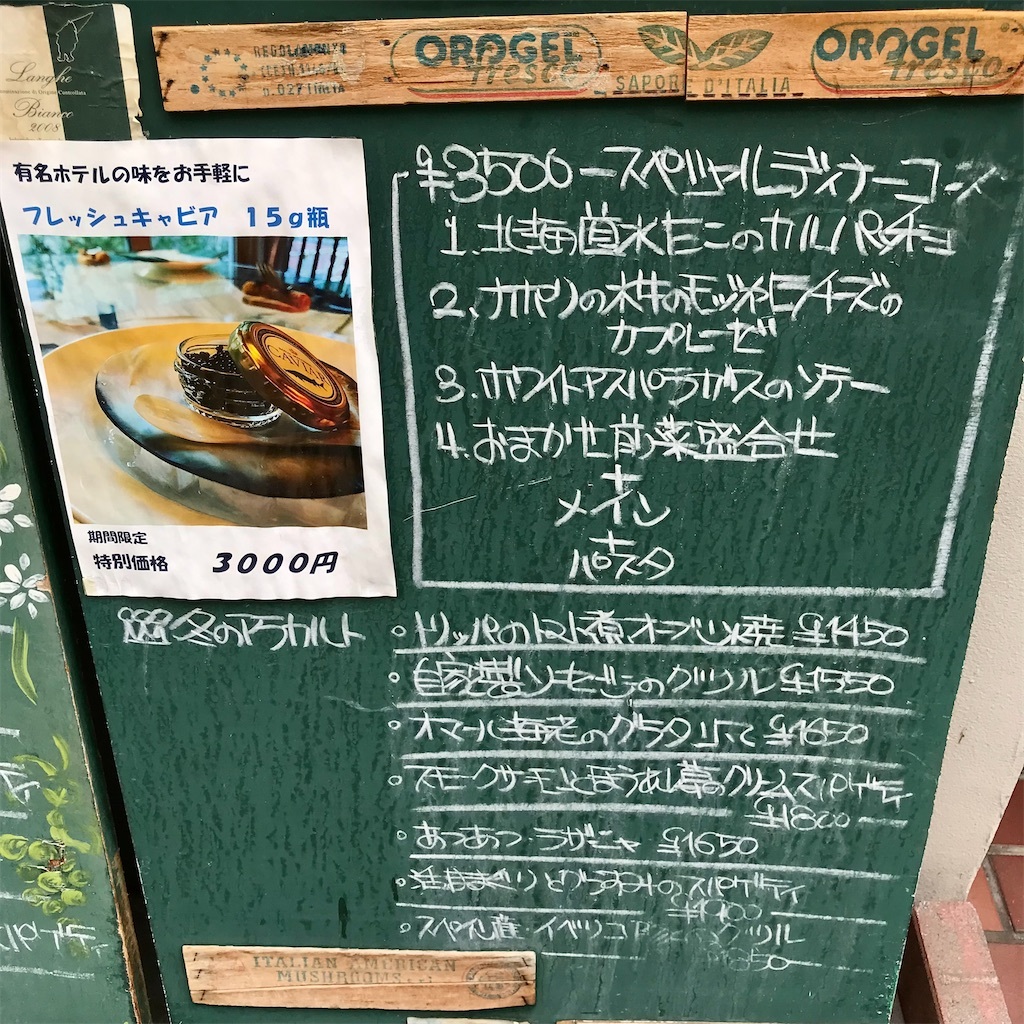 Langhe
Bianco
2008
OROGEL
fresco
SAPORE D'ITALIA
OROGEL
fresco
有名ホテルの味をお手軽に
フレッシュキャビア 15g瓶
CAVIAR
期間限定
特別価格 3000円
¥3500-スペシャルディナーコース
1. 北海道水ダコのカルパッチョ
2. ナポリの水牛のモッツァレラチーズの
カプレーゼ
3. ホワイトアスパラガスのソテー
4. おまかせ前菜盛合せ
+
メイン
+
パスタ
冬のアラカルト
。トリッパのトマト煮オーブン焼 ¥1450
。自家製ソーセージのグリル ¥1550
。オマール海老のグラタン ¥1650
。スモークサーモンとほうれん草のクリームスパゲティ
¥1800
。あつあつラザニャ ¥1650
のスパゲティ
¥1900
。スペイン産 イベリコ グリル
ITALIAN AMERICAN
MUSHROOMS